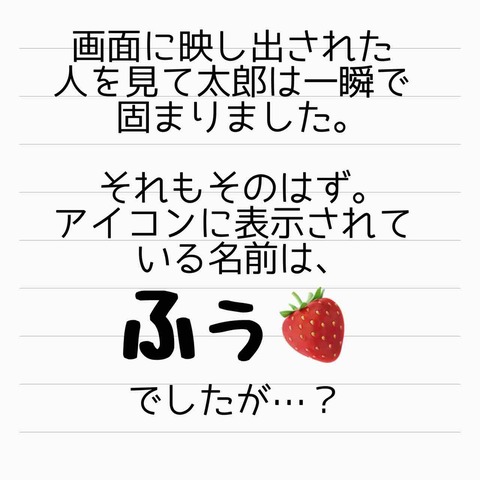 画面に映し出された
人を見て太郎は一瞬で
固まりました。
それもそのはず。
アイコンに表示されて
いる名前は、
ふぅ🍓
でしたが…？